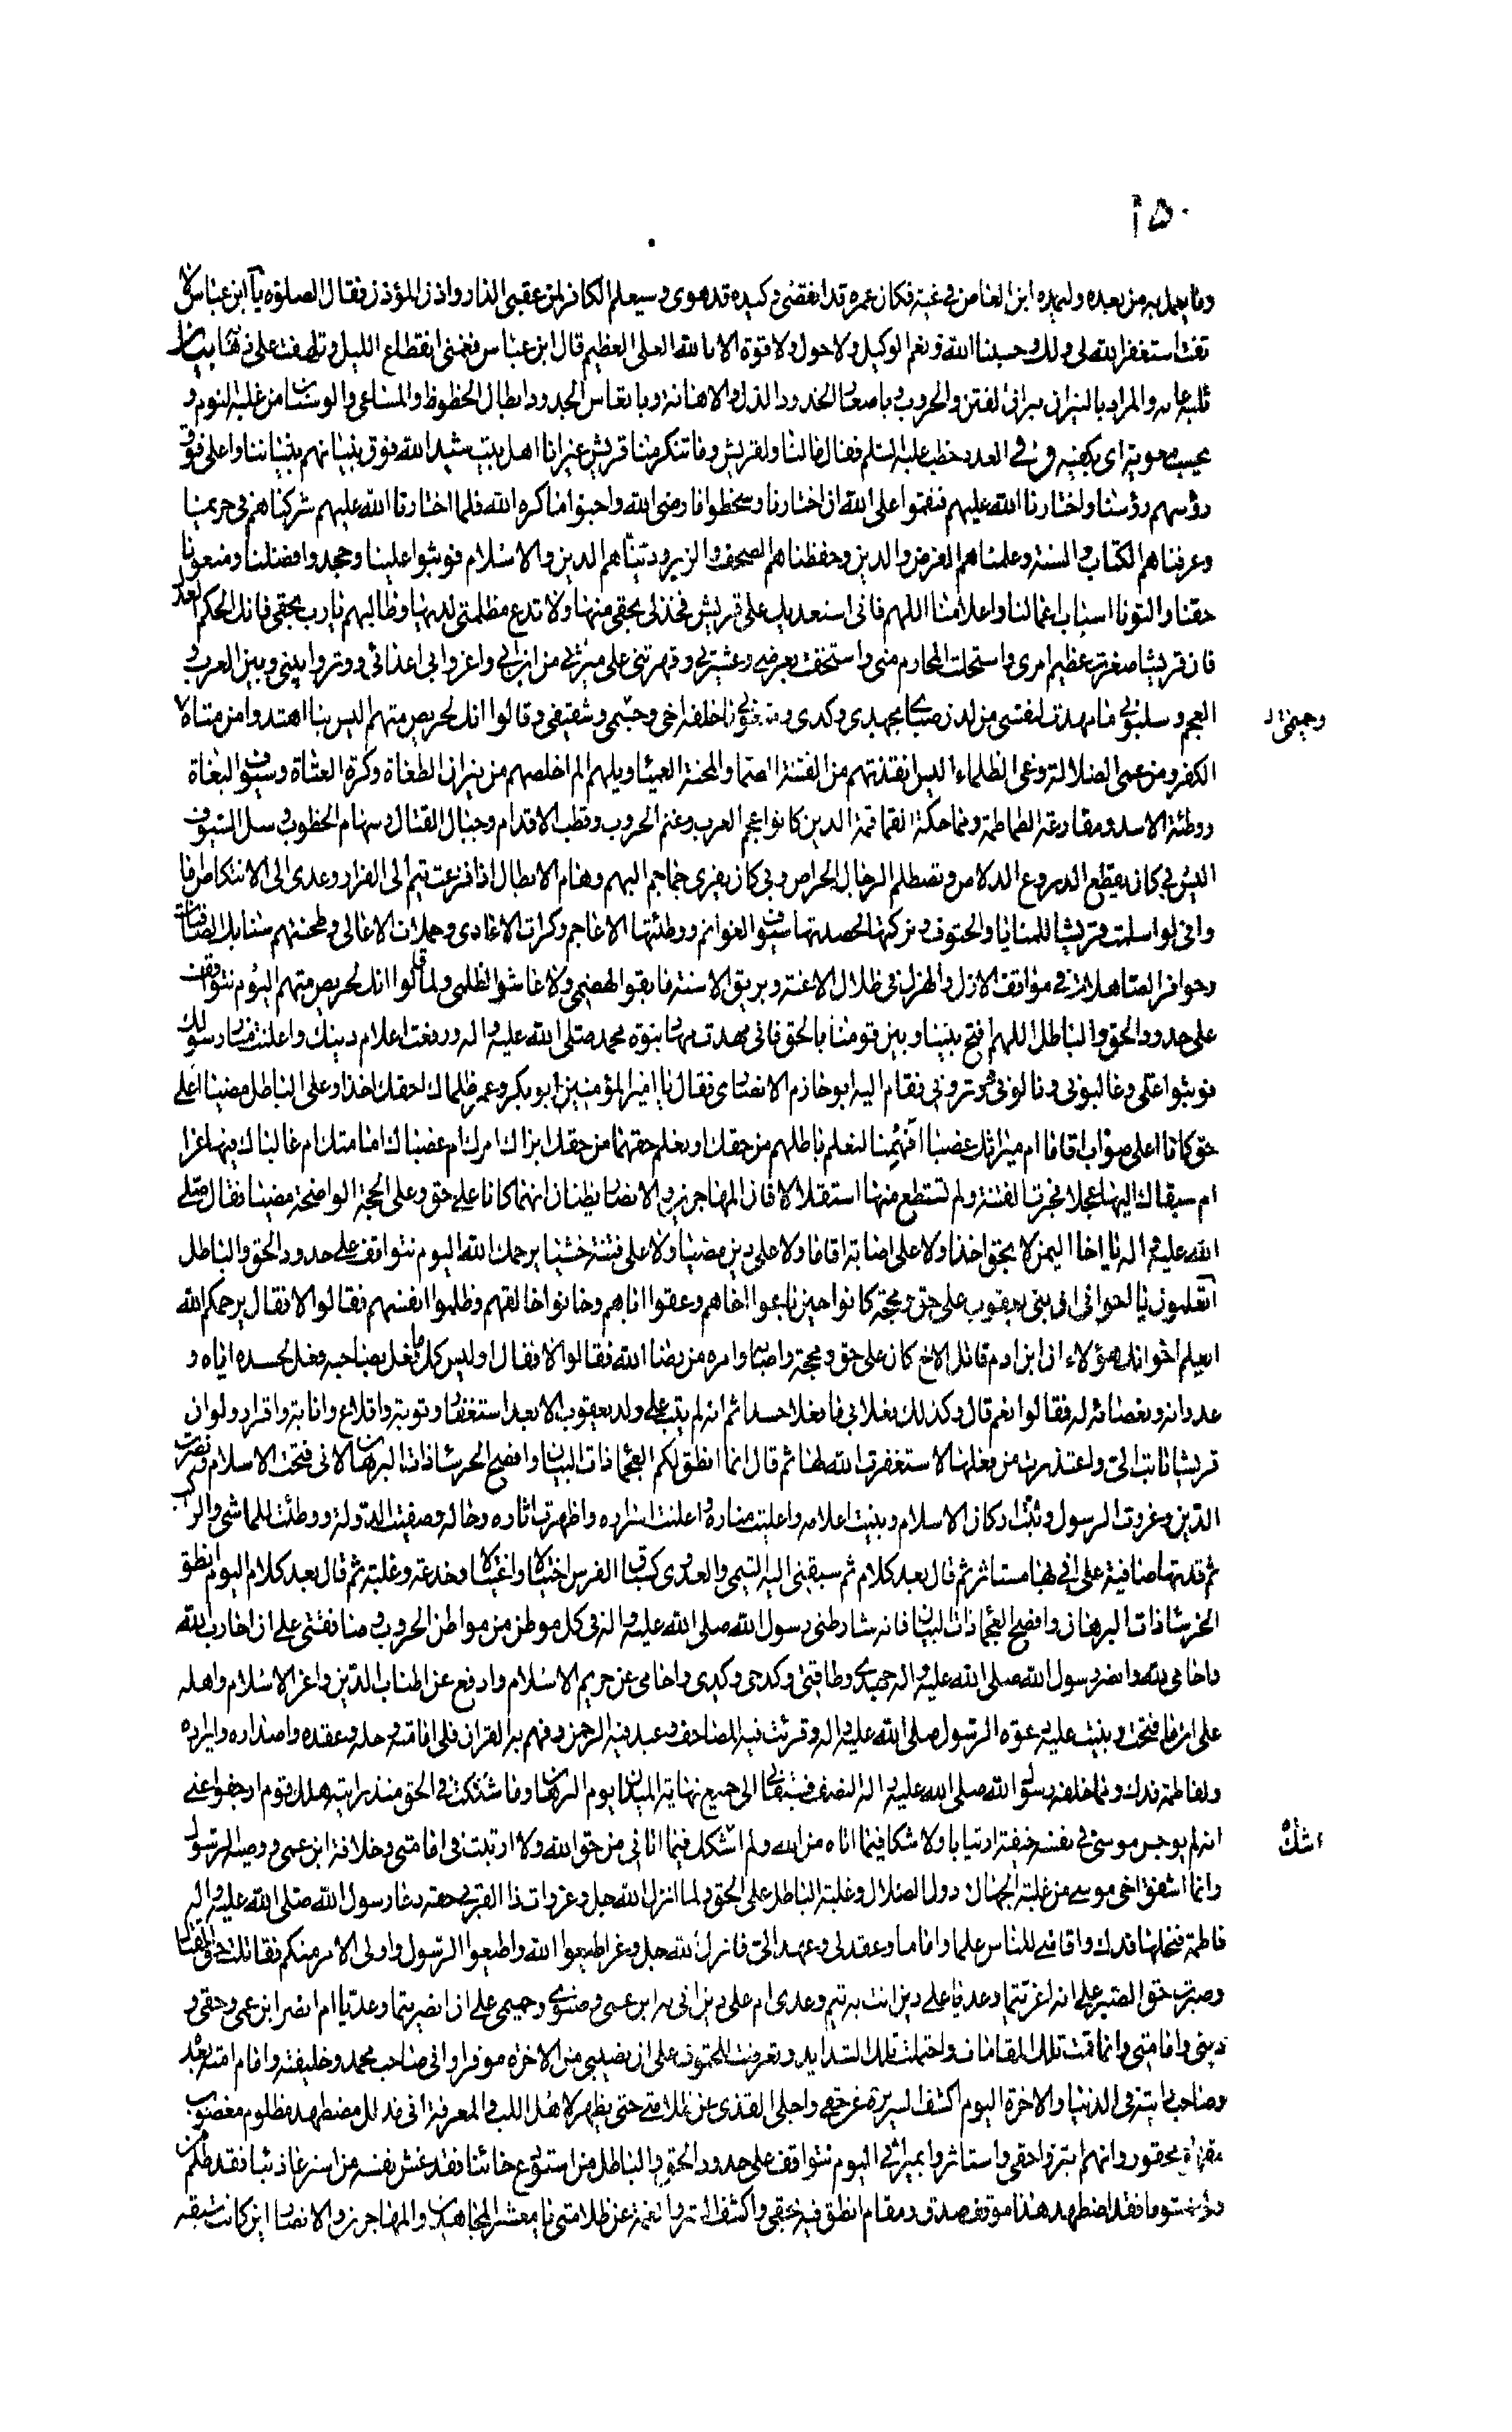 ١٥٠
وما يعمل به من بعده وليمده ابن العاص في غيه فكان عمره قد انقضى وكيده قد هوى وسيعلم الكافر لمن عقبى الدار واذن المؤذن فقال الصلوة يا ابن عباس لا
تفت استغفر الله لي ولك وحسبنا الله ونعم الوكيل ولا حول ولا قوة الا بالله العلي العظيم قال ابن عباس فغمني انقطاع الليل وتلهفت على ذهابه بيان
والمراد بالنيران نيران الفتن والحروب وباصعار الخدود الذل والاهانة وباتعاس الجدود ابطال الحظوظ والمساعي والوسنان من غلبه النوم و
يجيب معوية اي يكفيه في العدد خطب عليه السلم فقال ما لنا ولقريش وما تنكر منا قريش غير انا اهل بيت شيد الله فوق بنيانهم بنياننا واعلى فوق
رؤسهم رؤسنا واختارنا الله عليهم فنقموا على الله ان اختارنا وسخطوا ما رضى الله واحبوا ما كره الله فلما اختارنا الله عليهم شركناهم في حريمنا
وعرفناهم الكتاب والسنة وعلمناهم الفرض والدين وحفظناهم الصحف والزبر ودیناهم الدين والاسلام فوثبوا علينا وجحدوا فضلنا ومنعونا
حقنا والتونا اسباب اعمالنا واعلامنا اللهم فاني استعديك على قريش فخذ لي بحقي منها ولا تدع مظلمتي لديها وطالبهم يا رب بحقي فانك الحكم العدل
فان قريشا صغرت عظيم امري واستحلت المحارم مني واستخفت بعرضي وعشيرتي وقهرتني على ميراثي من ابن عمي واغروا بي اعدائي ووتروا بيني وبين العرب و
العجم وسلبوني ما مهدت لنفسي من لدن صباي بجهدي وكدي ومنعوني ما خلفه اخي وحميمي وشقيقي وقالوا انك لحريص متهم اليس بنا اهتدوا من متاه
الكفر ومن عمى الضلالة وغي الظلماء اليس انقذتهم من الفتنة الصماء والمحنة العمياء ويلهم الم اخلصهم من نيران الطغاة وكرة العتاة وسيوف البغاة
ووطئة الاسد ومقارعة الطماطمة ومماحكة القماقمة الذين كانوا عجم العرب وغنم الحروب وقطب الاقدام وجبال القتال وسهام الخطوب وسل السيوف
اليس بي كان يقطع الدروع الدلاص وتصطلم الرجال الحراص وبي كان يفري جماجم البهم وهام الابطال اذا فزعت تيم الى الفرار وعدي الى الانتكاص اما
واني لو اسلمت قريشا للمنايا والحتوف وتركتها لحصدتها سيوف الغوانم ووطئتها الاعاجم وكرات الاعادي وحملات الاعالي وطحنتهم سنابك الصافنات
وحوافر الصاهلات في مواقف الازل والهزل في ظلال الاعنة وبريق الاسنة ما بقوا لهضمي ولا عاشوا لظلمي ولما قالوا انك لحريص متهم اليوم نتواقف
على حدود الحق والباطل اللهم افتح بيننا وبين قومنا بالحق فاني مهدت مهاد نبوة محمد صلى الله عليه واله ورفعت اعلام دينك واعلنت منار رسولك
فوثبوا علي وغالبوني ونالوني ووتروني فقام اليه ابو حازم الانصاري فقال يا امير المؤمنين ابو بكر وعمر ظلماك احقك اخذا وعلى الباطل مضيا اعلى
حق كانا اعلى صواب اقاما ام ميراثك غصبا افهمنا لنعلم باطلهم من حقك او نعلم حقهما من حقك ابزاك امرك ام غصباك امامتك ام غالباك فيها عزا
ام سبقاك اليها عجلا فجرت الفتنة ولم تستطع منها استقلالا فان المهاجرين والانصار يظنان انهما كانا على حق وعلى الحجة الواضحة مضيا فقال صلى
الله عليه واله يا اخا اليمن لا بحق اخذا ولا على اصابة اقاما ولا على دين مضيا ولا على فتنة خشيا يرحمك الله اليوم نتواقف على حدود الحق والباطل
اتعلمون يا اخواني ان بني يعقوب على حق ومحجة كانوا حين باعوا اخاهم وعقوا اباهم وخانوا خالقهم وظلموا انفسهم فقالوا لا فقال يرحمكم الله
ايعلم اخوانك هؤلاء ان ابن ادم قاتل الاخ كان على حق ومحجة واصابة وامره من رضا الله فقالوا لا فقال اوليس كل فعل بصاحبه ما فعل لحسده اياه و
عدوانه وبغضائه له فقالوا نعم قال وكذلك فعلا بي ما فعلا حسدا ثم انه لم يتب على ولد يعقوب الا بعد استغفار وتوبة واقلاع وانابة واقرار ولو ان
قريشا تابت الي واعتذرت من فعلها لاستغفرت الله لها ثم قال انما انطق لكم العجماء ذات البيان وافصح الخرساء ذات البرهان لاني فتحت الاسلام ونصرت
الدين وعززت الرسول وثبت اركان الاسلام وبينت اعلامه واعليت مناره واعلنت اسراره واظهرت اثاره وحاله وصفيت الدولة ووطئت للماشي والراكب
ثم قدتها صافية على اني بها مستاثر ثم قال بعد كلام ثم سبقني اليه التيمي والعدوي كسباق الفرس احتيالا واغتيالا وخدعة وغلبة ثم قال بعد كلام اليوم انطق
الخرساء ذات البرهان وافصح العجماء ذات البيان فانه شارطني رسول الله صلى الله عليه واله في كل موطن من مواطن الحروب وصافقني على ان احارب لله
واحامي لله وانصر رسول الله صلى الله عليه واله جهدي وطاقتي وكدحي وكدي واحامي عن حريم الاسلام وارفع عن اطناب الدين واعز الاسلام واهله
على ان ما فتحت وبينت عليه دعوة الرسول صلى الله عليه واله وقرئت فيه المصاحف وعبد فيه الرحمن وفهم به القران فلي امامته وحله وعقده واصداره وايراده
ولفاطمة فدك ومما خلفه رسول الله صلى الله عليه واله النصف فسبقاني الى جميع نهاية الميدان يوم الرهان وما شككت في الحق منذ رايته هلك قوم ارجفوا عني
انه لم يوجس موسى في نفسه خيفة ارتيابا ولا شكا فيما اتاه من الله ولم اشكك فيما اتاني من حق الله ولا ارتبت في امامتي وخلافة ابن عمي ووصية الرسول
وانما اشفق اخي موسى من غلبة الجهال ودول الضلال وغلبة الباطل على الحق ولما انزل الله جل وعز وات ذا القربى حقه دعا رسول الله صلى الله عليه واله
فاطمة فنحلها فدك واقامني للناس علما واماما وعقد لي وعهد الي فانزل الله جل وعز اطيعوا الله واطيعوا الرسول واولي الامر منكم فقاتلت حق القتال
وصبرت حق الصبر على انه اعز تيما وعديا على دين اتت به تيم وعدي ام على دين اتى به ابن عمي وصنوي وجسمي على ان انصر تيما وعديا ام انصر ابن عمي وحقي و
ديني وامامتي وانما قمت تلك المقامات واحتملت تلك الشدايد وتعرضت للحتوف على ان نصيبي من الاخرة موفرا واني صاحب محمد وخليفته وامام امته بعده
وصاحب رايته في الدنيا والاخرة اليوم اكشف السريرة عن حقي واجلي القذى عن ظلامتي حتى يظهر لاهل اللب والمعرفة اني مذلل مضطهد مظلوم مغصوب
مقهور محقور وانهم ابتزوا حقي واستاثروا بميراثي اليوم نتواقف على حدود الحق والباطل من استودع خائنا فقد غش نفسه من استرعى ذئبا فقد ظلم من
ولي غشوما فقد اضطهد هذا موقف صدق ومقام انطق فيه بحقي واكشف الستر والغمة عن ظلامتي يا معشر المجاهدين والمهاجرين والانصار اين كانت سبقة